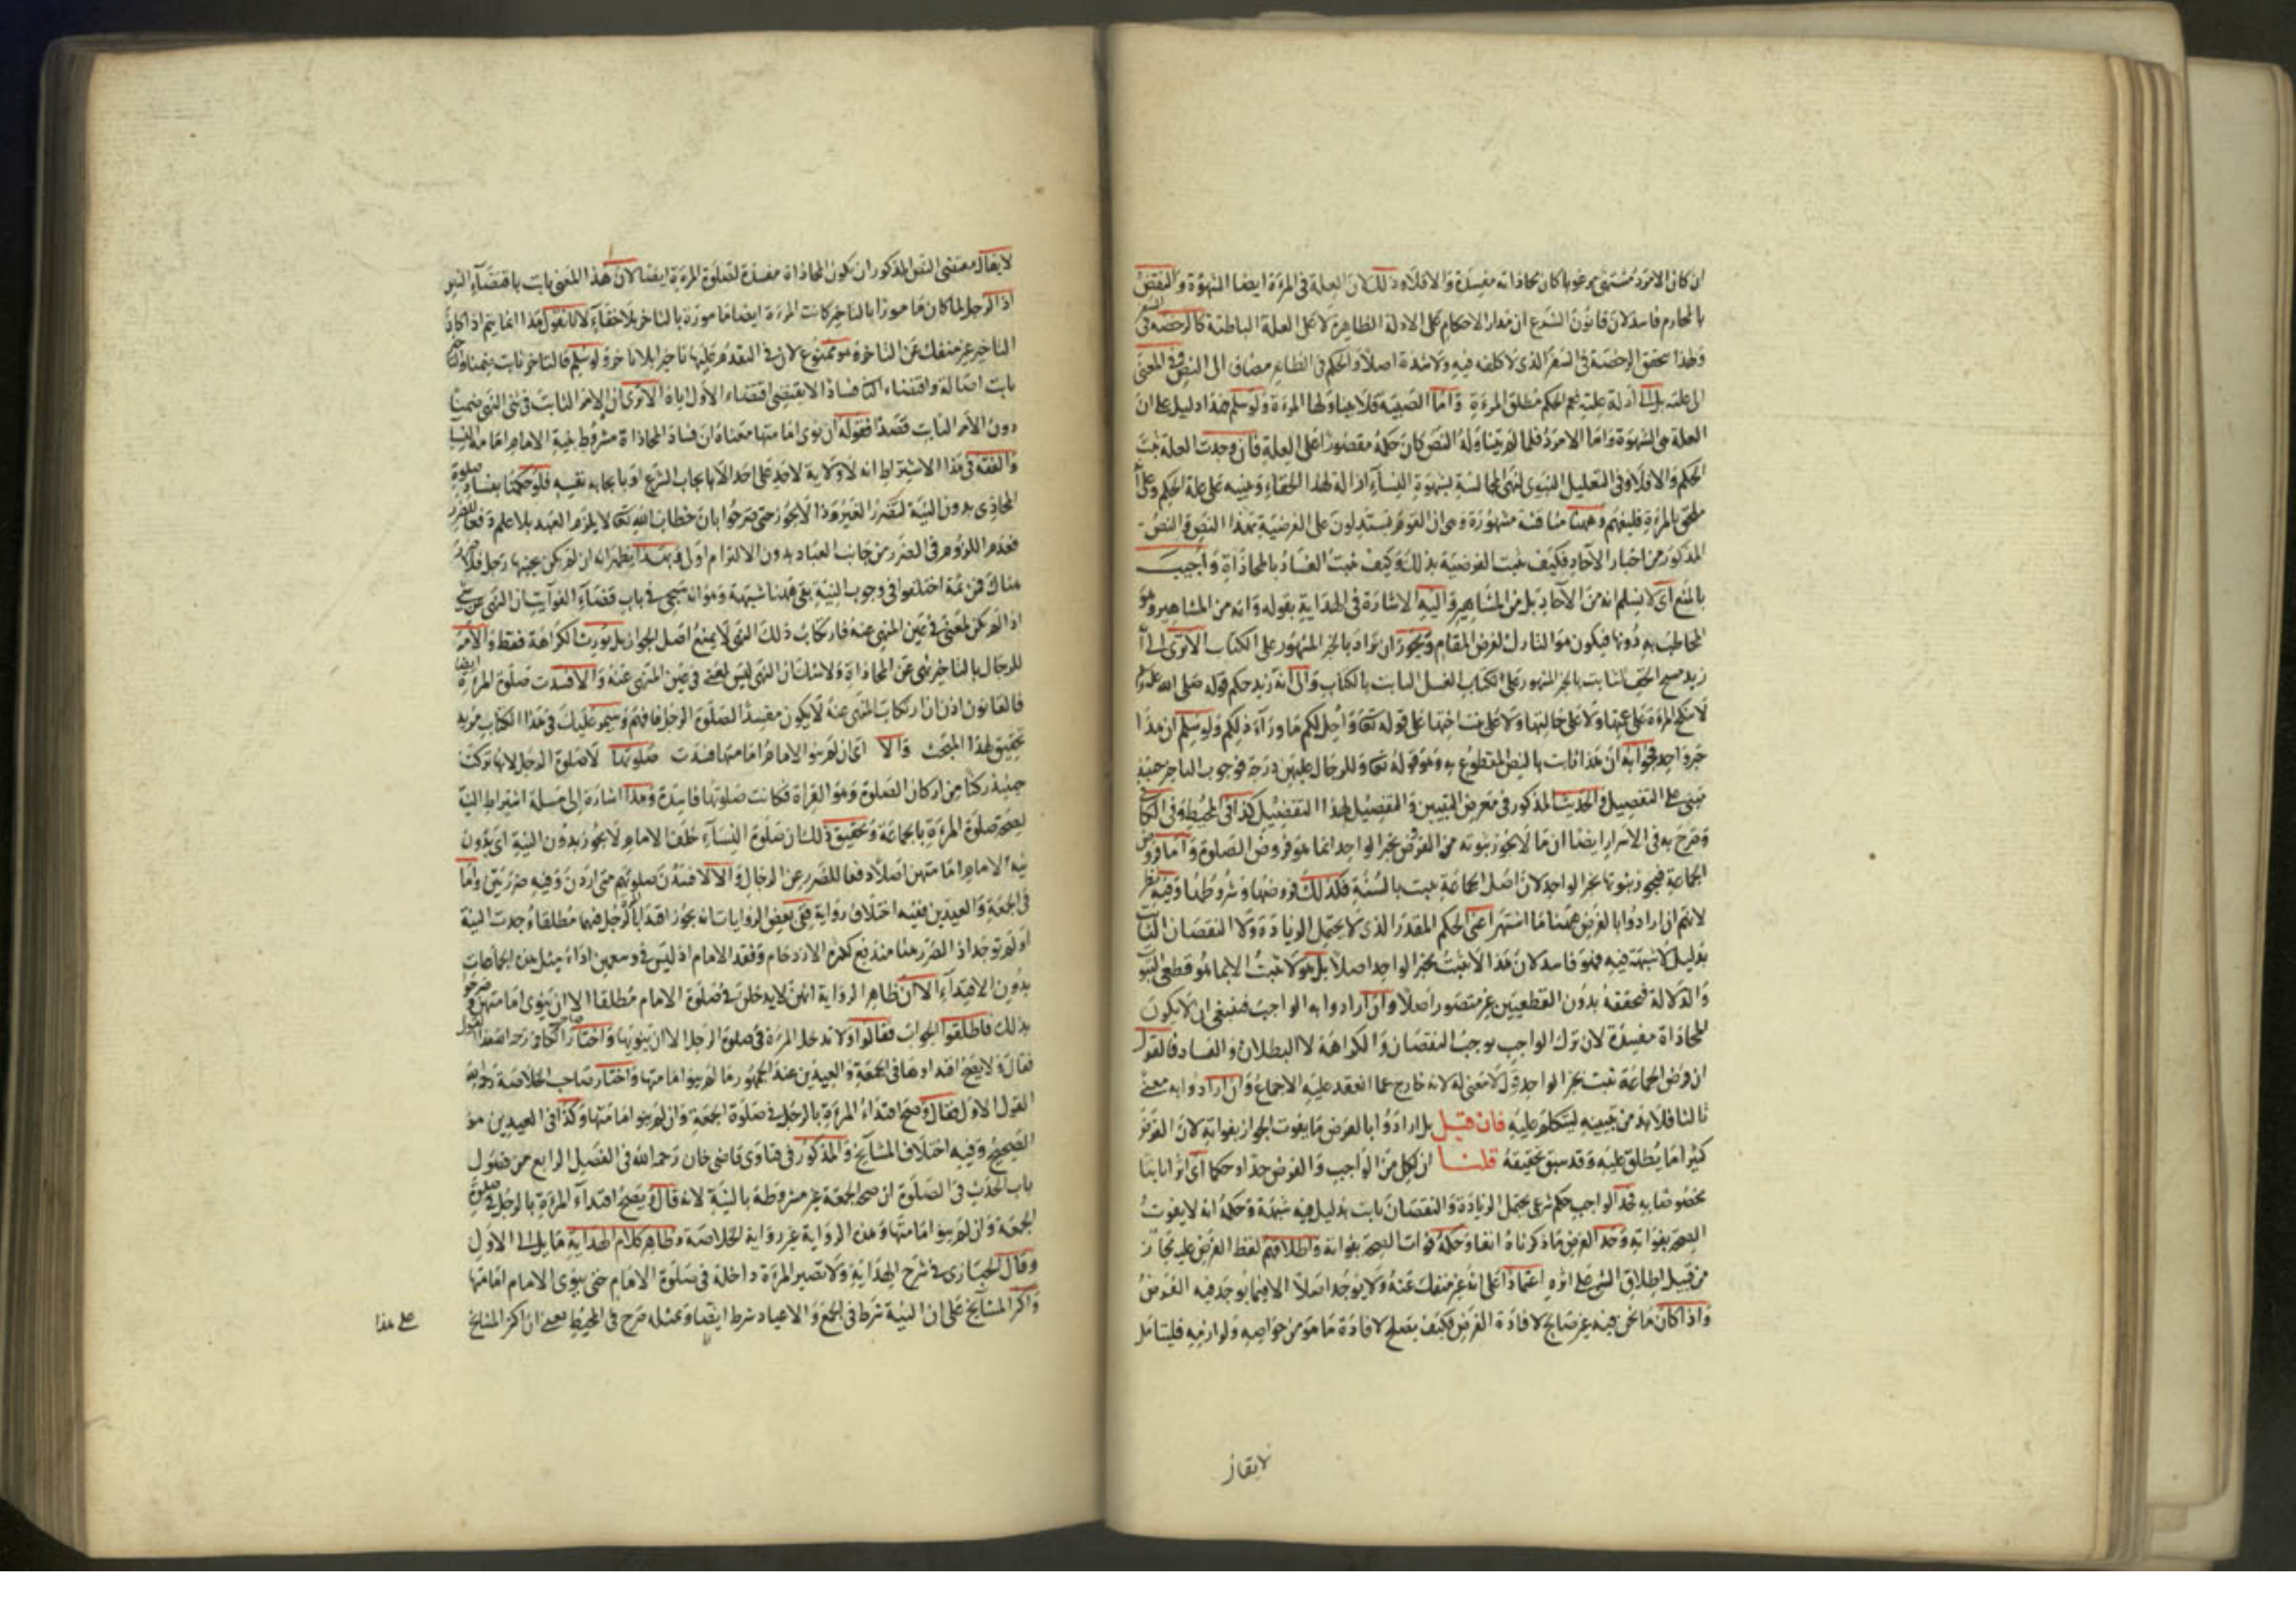 ان كان الامرد مشتهى مرغوبا كان محاذاته مفسدة والا فلا وذلك لان العلة فى المرءة ايضا الشهوة والنقض
بالمحارم فاسد لان قانون الشرع ان مدار الاحكام على الادلة الظاهرة لا على العلة الباطنة كالرخصة فى السفر
ولهذا تحقق الرخصة فى السفر الذى لا كلفه فيه ولا شدة اصلا والحكم فى الظاهر مضاف الى النص وفى المعنى
الى علته بل الى ادلة علته فعم الحكم مطلق المرءة واما الصبية فلا يتناولها المرءة ولو سلم فهذا دليل على ان
العلة هى الشهوة واما الامرد فلما لم يتناوله النص كان حكمه مقصورا على العلة فان وجدت العلة ثبت
الحكم والا فلا وفى التعليل النبوى لنهى المجالسة بشهوة النساء ازالة لهذا الخفاء وتنبيه على علة الحكم وعلى
ملحق بالمرءة فليفهم وههنا مناقشة مشهورة وهى ان القوم يستدلون على الفرضية بهذا النص والنص
المذكور من اخبار الآحاد فكيف يثبت الفرضية بذلك وكيف يثبت الفساد بالمحاذاة واجيب
بالمنع اى لا نسلم انه من الآحاد بل من المشاهير واليه الاشارة فى الهداية بقوله وانه من المشاهير وهو
المخاطب به دونها فيكون هو التارك لفرض المقام ويجوز ان يزاد بالخبر المشهور على الكتاب الا ترى الى
زيد مسح الخف الثابت بالخبر المشهور على الكتاب الغسل الثابت بالكتاب والى انه زيد حكم قوله صلى الله عليه وسلم
لا تنكح المرءة على عمتها ولا على خالتها ولا على بنت اختها على قوله تعالى واحل لكم ما وراء ذلكم ولو سلم ان هذا
خبر واحد فجوابه ان هذا ثابت بالنص المقطوع به وهو قوله تعالى وللرجال عليهن درجة فوجوب التاخر حينئذ
مبنى على التفصيل والحديث المذكور فى معرض التبيين والتفصيل لهذا التفضيل كذا فى المحيط وفى الكافى
وصرح به فى الاسرار ايضا ان ما لا يجوز ثبوته من الفرض بخبر الواحد انما هو فروض الصلوة واما فروض
الجماعة فيجوز ثبوتها بخبر الواحد لان اصل الجماعة يثبت بالسنة فكذلك فروضها وشروطها وفيه نظر
لانهم ان ارادوا بالفرض ههنا ما اشتهر اعنى الحكم المقدر الذى لا يحتمل الزيادة ولا النقصان الثابت
بدليل لا شبهة فيه فهو فاسد لان هذا لا يثبت بخبر الواحد اصلا بل هو لا يثبت الا بما هو قطعى الثبوت
والدلالة فتحققه بدون القطعيين غير متصور اصلا وان ارادوا به الواجب فينبغى ان لا يكون
المحاذاة مفسدة لان ترك الواجب يوجب النقصان والكراهة لا البطلان والفساد فالقول
ان فرض الجماعة يثبت بخبر الواحد قول لا معنى له لانه خارج عما انعقد عليه الاجماع وان ارادوا به معنى
ثالثا فلا بد من تبيينه ليتكلم عليه فان قيل بل ارادوا بالفرض ما يفوت الجواز بفواته لان الفرض
كثيرا ما يطلق عليه وقد سبق تحقيقه قلنا ان لكل من الواجب والفرض حدا وحكما اى اثرا ثابتا
مخصوصا به فحد الواجب حكم شرعى يحتمل الزيادة والنقصان ثابت بدليل فيه شبهة وحكمه انه لا يفوت
الصحة بفواته وحد الفرض ما ذكرناه انفا وحكمه فوات الصحة بفواته واطلاقهم لفظ الفرض عليه مجاز
من قبيل اطلاق الشئ على اثره اعتمادا على انه غير منفك عنه ولا يوجد اصلا الا فيما يوجد فيه الفرض
واذا كان ما نحن فيه غير صالح لافادة الفرض فكيف يصلح لافادة ما هو من خواصه ولوازمه فليتامل
لا يقال
لا يقال مقتضى النص المذكور ان يكون المحاذاة مفسدة لصلوة المرءة ايضا لان هذا المعنى ثابت باقتضاء النص
اذ الرجل لما كان مامورا بالتاخير كانت المرءة ايضا مامورة بالتاخر بلا خفاء لانا نقول هذا انما يتم اذا كان
التاخير غير منفك عن التاخر وهو ممنوع لان فى التقدم عليها تاخيرا بلا تاخر ولو سلم فالتاخر ثابت ضمنا
ثابت اصالة واقتضاء الثانى فسادا لا يقتضى اقتضاء الاول اياه الا ترى ان الامر الثابت فى ضمن النهى ضمنيا
دون الامر الثابت قصدا فقوله ان نوى امامتها معناه ان فساد المحاذاة مشروط بنية الامام امامة النساء
والفقه فى هذا الاشتراط انه لا ولاية لاحد على احد الا بايجاب الشرع او بايجابه نفسه فلو حكمنا بفساد صلوة
المحاذى بدون النية لتضرر الغير وذا لا يجوز حتى صرحوا بان خطاب الله تعالى لا يلزم العبد بلا علم دفعا للضرر
فعدم اللزوم فى الضرر من جانب العباد بدون الالتزام اولى وبهذا يظهر انه ان لم يكن بجنبها رجل فلا ضرر
هناك فمن ثمة اختلفوا فى وجوب النية بقى هنا شبهة وهو انه سيجئ فى باب قضاء الفوائت ان النهى عن شئ
اذا لم يكن لمعنى فى عين المنهى عنه فارتكاب ذلك النهى لا يمنع اصل الجواز بل يورث الكراهة فقط والامر
للرجال بالتاخير نهى عن المحاذاة ولا شك ان النهى ليس لمعنى فى عين المنهى عنه والا لفسدت صلوة المرءة ايضا
فالقانون اذن ان ارتكاب المنهى عنه لا يكون مفسدا لصلوة الرجل فافهم وسيمر عليك فى هذا الكتاب مزيد
تحقيق لهذا المبحث والا اى ان لم ينو الامام امامتها فسدت صلوتها لا صلوة الرجل لانها تركت
حينئذ ركنا من اركان الصلوة وهو القراة فكانت صلوتها فاسدة وهذا اشارة الى مسئلة اشتراط النية
لصحة صلوة المرءة بالجماعة وتحقيق ذلك ان صلوة النساء خلف الامام لا يجوز بدون النية اى بدون
نية الامام امامتهن اصلا دفعا للضرر عن الرجال والا لافسدن صلوتهم متى اردن وفيه ضرر بين واما
فى الجمعة والعيدين ففيه اختلاف رواية ففى بعض الروايات انه يجوز اقتداؤها بالرجل فيهما مطلقا وجدت النية
او لم توجد اذ الضرر هنا مندفع لكثرة الازدحام وفقد الامام اذ ليس فى وسعهن اداء مثل هذه الجماعات
بدون الاقتداء الا ان ظاهر الرواية انهن لا يدخلن فى صلوة الامام مطلقا الا ان ينوى امامتهن وصرحوا
بذلك فاطلقوا الجواب فقالوا ولا تدخل المرءة فى صلوة الرجل الا ان ينويها واختار صاحب الكافى رحمه الله هذا القول
فقال ولا يصح اقتداؤها فى الجمعة والعيدين عند الجمهور ما لم ينو امامتها واختار صاحب الخلاصة رحمه الله
القول الاول فقال وصح اقتداء المرءة بالرجل فى صلوة الجمعة وان لم ينو امامتها وكذا فى العيدين هو
الصحيح وفيه اختلاف المشايخ والمذكور فى فتاوى قاضى خان رحمه الله فى الفصل الرابع من فصول
باب الحدث فى الصلوة ان صحة الجمعة غير مشروطة بالنية لانه قال ويصح اقتداء المرءة بالرجل فى صلوة
الجمعة وان لم ينو امامتها وهذه الرواية غير رواية الخلاصة وظاهر كلام الهداية مايل الى الاول
وقال الخبازى فى شرح الهداية ولا تصير المرءة داخلة فى صلوة الامام حتى ينوى الامام امامتها
واكثر المشايخ على ان النية شرط فى الجمع والاعياد شرط ايضا وبمثله صرح فى المحيط يعنى ان اكثر المشايخ
على هذا